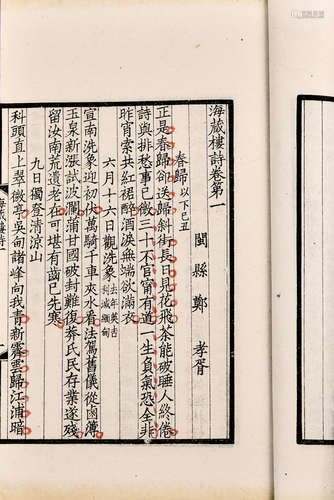 海藏樓詩卷第一
閩縣鄭 孝胥
春歸 以下己丑
正是春歸卻送歸斜街長日見花飛茶能破睡人終倦
詩與排愁事已微三十不官寧有道一生負氣恐全非
昨宵索共紅裙醉酒淚無端欲滿衣
六月十六日觀洗象 去年英吉利滅緬甸
宣南洗象迎初伏萬騎千車夾水看法駕舊儀從鹵簿
玉泉新漲試波瀾蒲甘國破封難復莽氏民存業遂殘
留汝南荒遺老在可堪有齒已先寒
九日獨登清涼山
科頭直上翠微亭吳甸諸峰向我青新霽雲歸江浦暗
海藏樓詩一